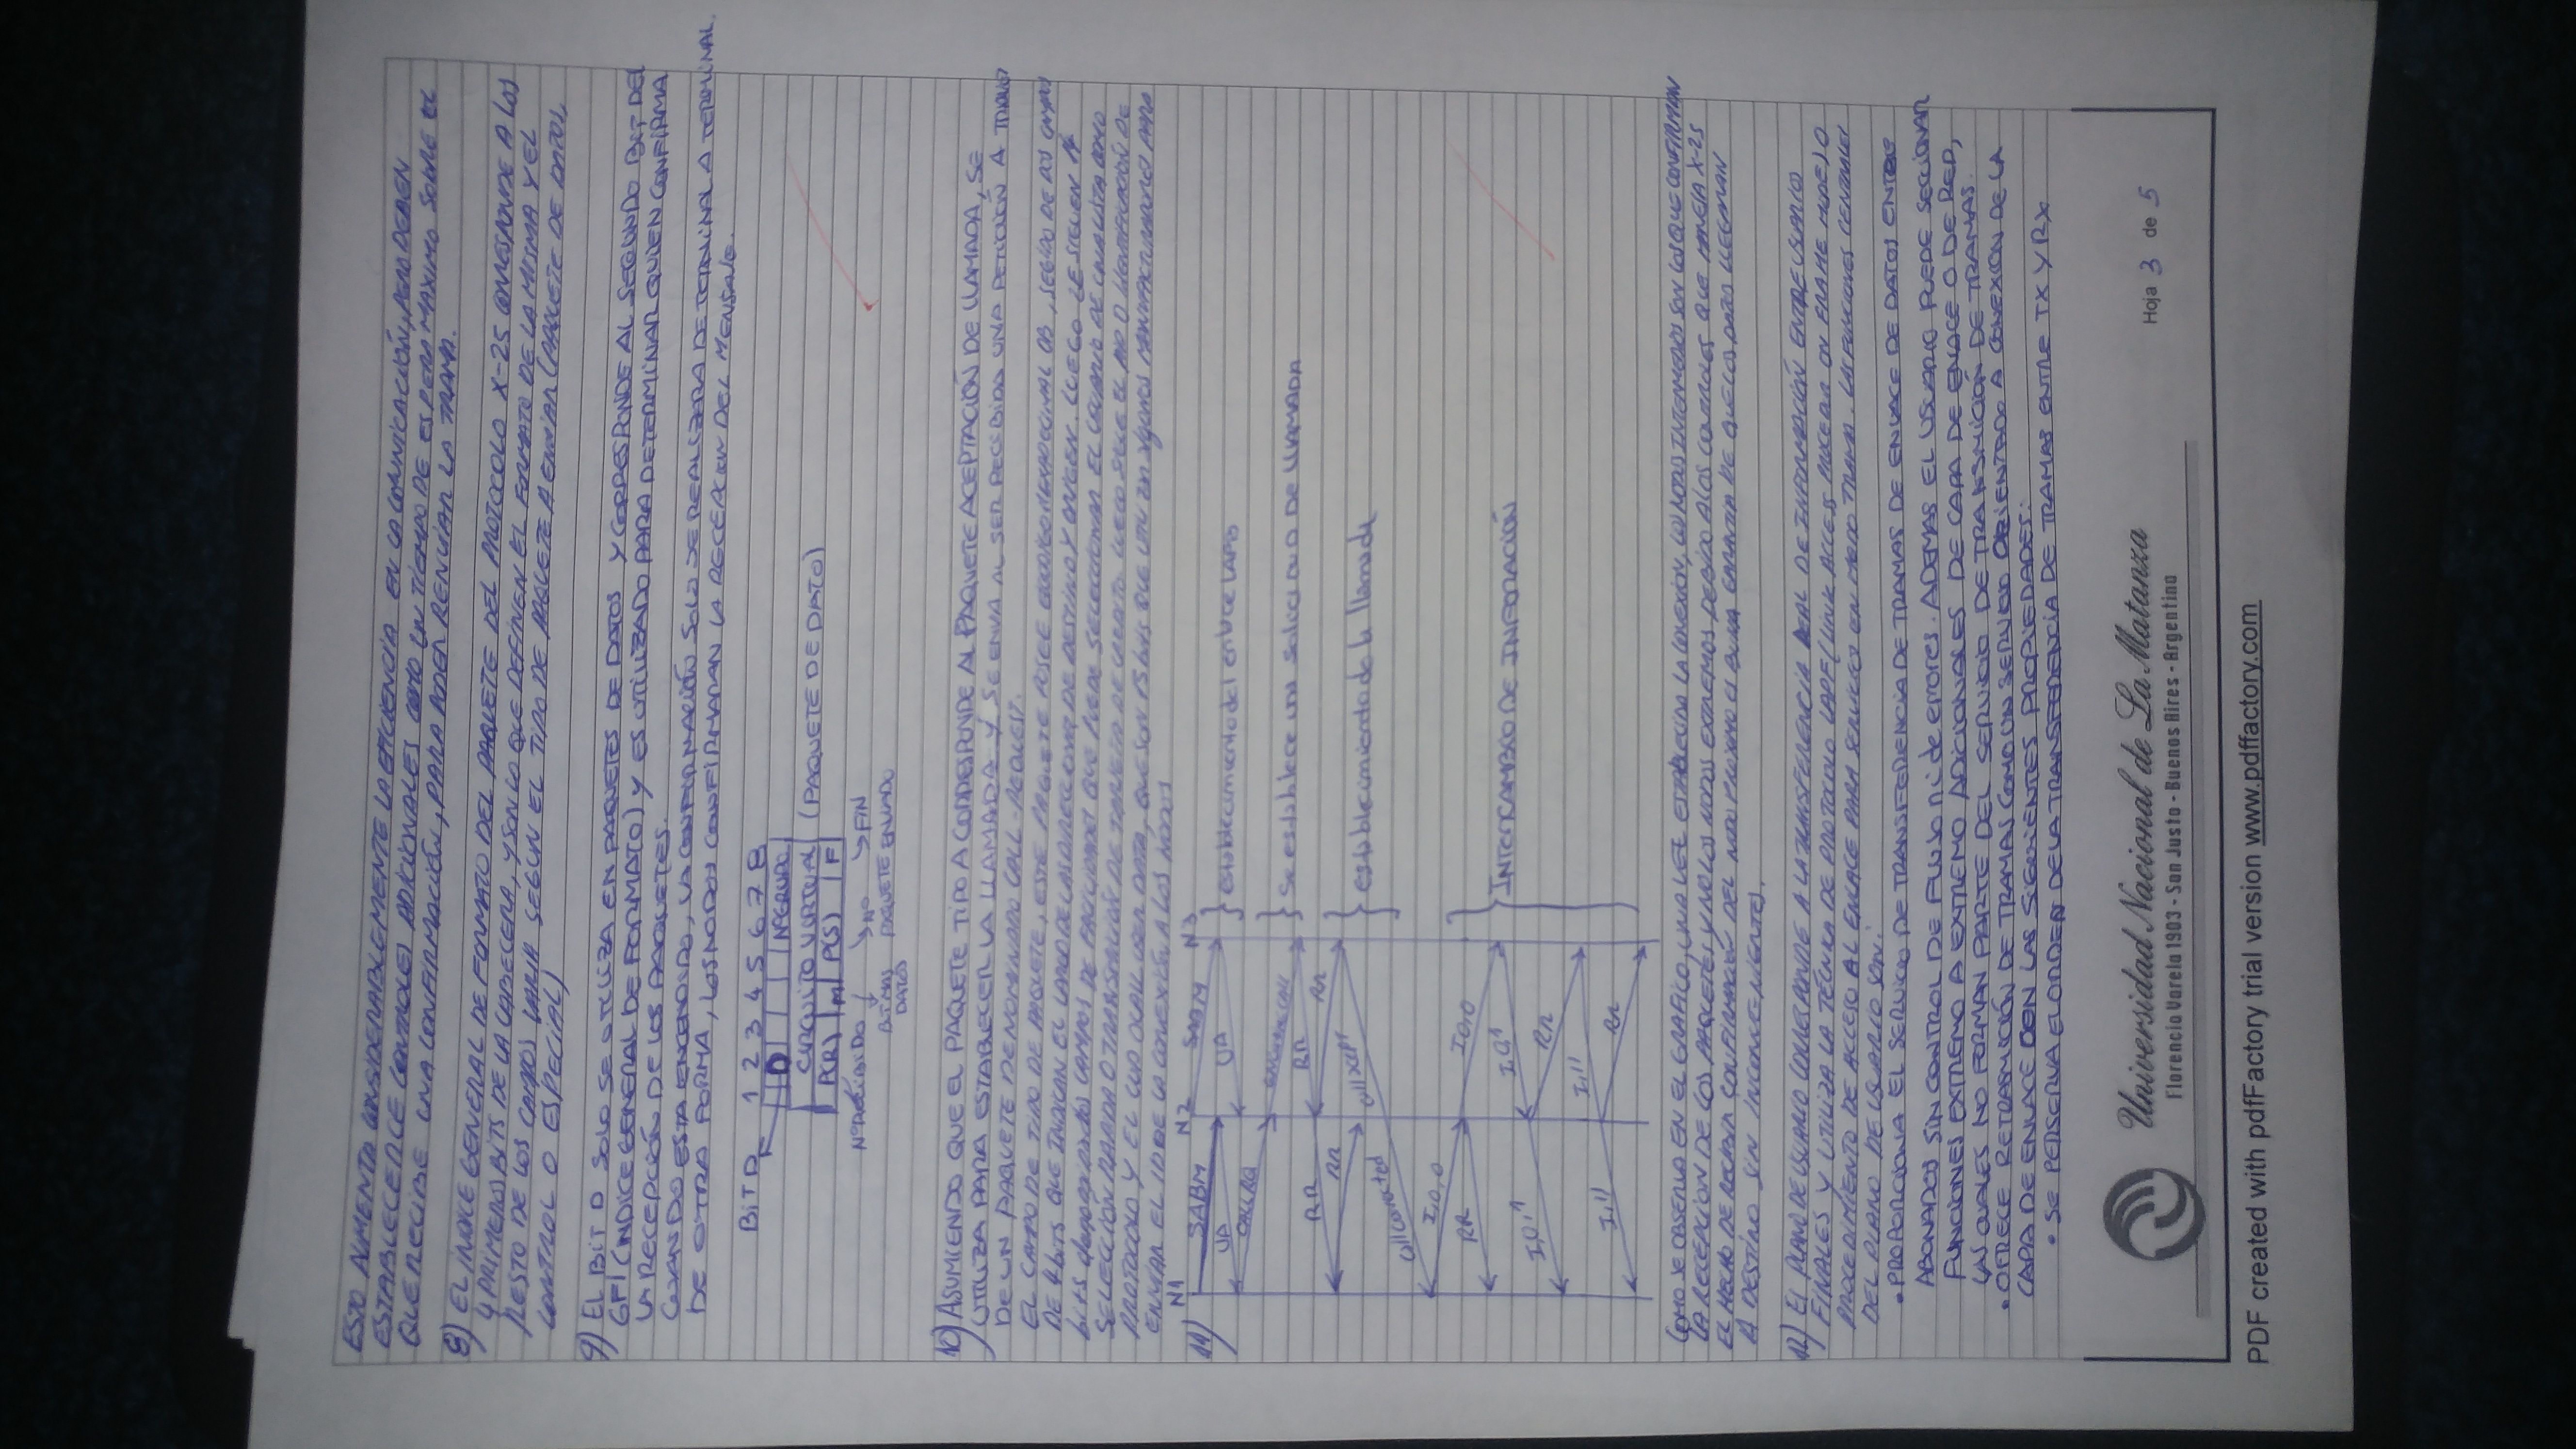 ESTO AUMENTA CONSIDERABLEMENTE LA EFICIENCIA EN LA COMUNICACIÓN, PERO DEBEN
ESTABLECERCE CONTROLES ADICIONALES COMO UN TIEMPO DE ESPERA MAXIMO SOBRE EL
QUE RECIBE UNA CONFIRMACIÓN, PARA PODER RENVIAR LA TRAMA.
8) EL INDICE GENERAL DE FORMATO DEL PAQUETE DEL PROTOCOLO X-25 CORRESPONDE A LOS
4 PRIMEROS BITS DE LA CABECERA, Y SON LO QUE DEFINEN EL FORMATO DE LA MISMA Y EL
RESTO DE LOS CAMPOS VARIA SEGÚN EL TIPO DE PAQUETE A ENVIAR (PAQUETE DE DATOS,
CONTROL O ESPECIAL)
9) EL BIT D SOLO SE UTILIZA EN PAQUETES DE DATOS Y CORRESPONDE AL SEGUNDO BIT DEL
GFI (INDICE GENERAL DE FORMATO) Y ES UTILIZADO PARA DETERMINAR QUIEN CONFIRMA
LA RECEPCIÓN DE LOS PAQUETES.
CUANDO ESTA ENCENDIDO, LA CONFIRMACIÓN SOLO SE REALIZARA DE TERMINAL A TERMINAL.
DE OTRA FORMA, LOS NODOS CONFIRMARAN LA RECEPCION DEL MENSAJE.
BIT D 1 2 3 4 5 6 7 8
D NºGRUPO
CIRCUITO VIRTUAL (PAQUETE DE DATO)
P(R) M P(S) F
Nº RECIBIDO Nº FIN
BIT MAS PAQUETE ENVIADO
DATOS
10) ASUMIENDO QUE EL PAQUETE TIPO A CORRESPONDE AL PAQUETE ACEPTACIÓN DE LLAMADA, SE
UTILIZA PARA ESTABLECER LA LLAMADA Y SE ENVA AL SER RECIBIDA UNA PETICIÓN A
DE UN PAQUETE DENOMINADO CALL-REQUEST.
EL CAMPO DE TIPO DE PAQUETE, ESTE PAQUETE POSEE HEXADECIMAL 0B, SEGIDO DE DOS CAMPOS
DE 4 bits QUE INDICAN EL LARGO DE LAS DIRECCIONES DE DESTINO Y ORIGEN. LUEGO LE SIGUEN
bits denominados CAMPOS DE FACILIDADES QUE PUEDE SELECCIONAR EL USUARIO DE UNA LISTA COMO
SELECCIÓN RAPIDA O DE TARJETA DE CREDITO. LUEGO SIGUE EL PID O IDENTIFICACIÓN DE
PROTOCOLO Y EL CUD O CALL USER DATA, QUE SON bits QUE UTILIZAN algunos MANUFACTURADORES PARA
ENVIAR EL ID DE LA CONEXIÓN A LOS NODOS
N1 N2 N3
11) SABM SABM
UA UA } establecimiento del enlace LAPB
CALL RQ
CALL } Se establece una solicitud DE LLAMADA
RR RR
RR RR
call acept } establecimiento de la llamada
call conected
I,0,0
RR I,0,0
I,0,1 } INTERCAMBIO DE INFORACIÓN
I,0,1
RR
I,1,1
I,1,1 RR
COMO SE OBSERVA EN EL GRAFICO, UNA VEZ ESTABLECIDA LA CONEXION, LOS NODOS INTERMEDIOS SON LOS QUE CONFIRMAN
LA RECEPCION DE LOS PAQUETES Y NO LOS NODOS EXTREMOS DEBIDO A LOS CONTROLES QUE MANEJA X-25
EL HECHO DE RECIBIR CONFIRMACIÓN DEL NODO PROXIMO ES BUENA GARANTIA DE QUE LOS DATOS LLEGARAN
A DESTINO SIN INCONVENIENTES.
12) EL PLANO DE USUARIO CORRESPONDE A LA TRANSFERENCIA REAL DE INFORMACIÓN ENTRE USUARIOS
FINALES Y UTILIZA LA TÉCNICA DE PROTOCOLO LAPF (LINK ACCESS FRAME MODE) O
PROCEDIMIENTO DE ACCESO AL ENLACE PARA SERVICIOS EN MODO TRAMA. LAS FUNCIONES CENTRALES
DEL PLANO DE USUARIO SON:
• PROPORCIONA EL SERVICIO DE TRANSFERENCIA DE TRAMAS DE ENLACE DE DATOS ENTRE
ABONADOS SIN CONTROL DE FLUJO ni de errores. ADEMAS EL USUARIO PUEDE SECCIONAR
FUNCIONES EXTREMO A EXTREMO ADICIONALES DE CAPA DE ENLACE O DE RED,
LAS CUALES NO FORMAN PARTE DEL SERVICIO DE TRANSMICIÓN DE TRAMAS.
• OFRECE RETRASMICIÓN DE TRAMAS COMO UN SERVICIO ORIENTADO A CONEXIÓN DE LA
CAPA DE ENLACE CON LAS SIGUIENTES PROPIEDADES:
• SE PERSERVA EL ORDEN DE LA TRANSFERENCIA DE TRAMAS ENTRE TX Y RX
Universidad Nacional de La Matanza
Florencio Varela 1903 - San Justo - Buenos Aires - Argentina
Hoja 3 de 5
PDF created with pdfFactory trial version www.pdffactory.com